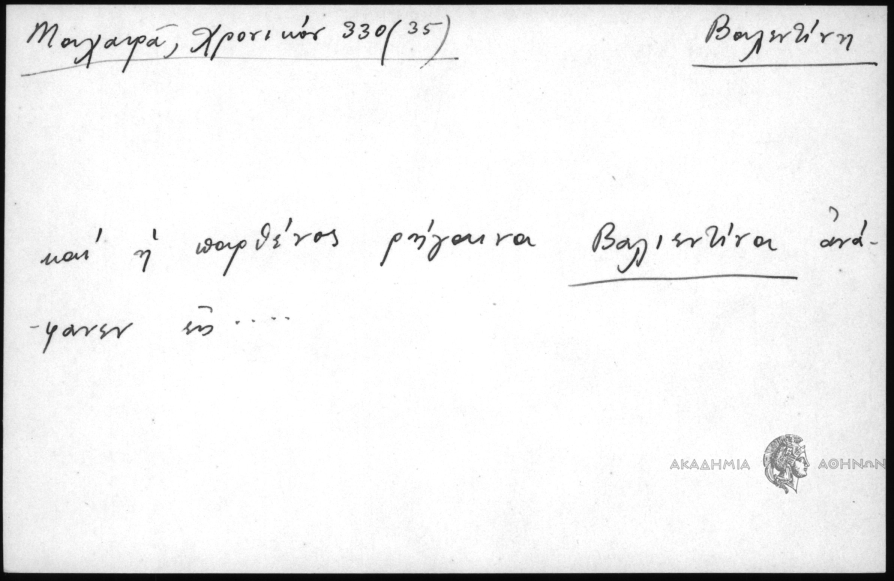 Μαχαιρᾶ, Χρονικόν 330 (35) Βαλεντίνη
καί ἡ παρθένος ρήγαινα Βαλιεντίνα ἀνά-
-φανεν εἰς ....
ΑΚΑΔΗΜΙΑ ΑΘΗΝΩΝ